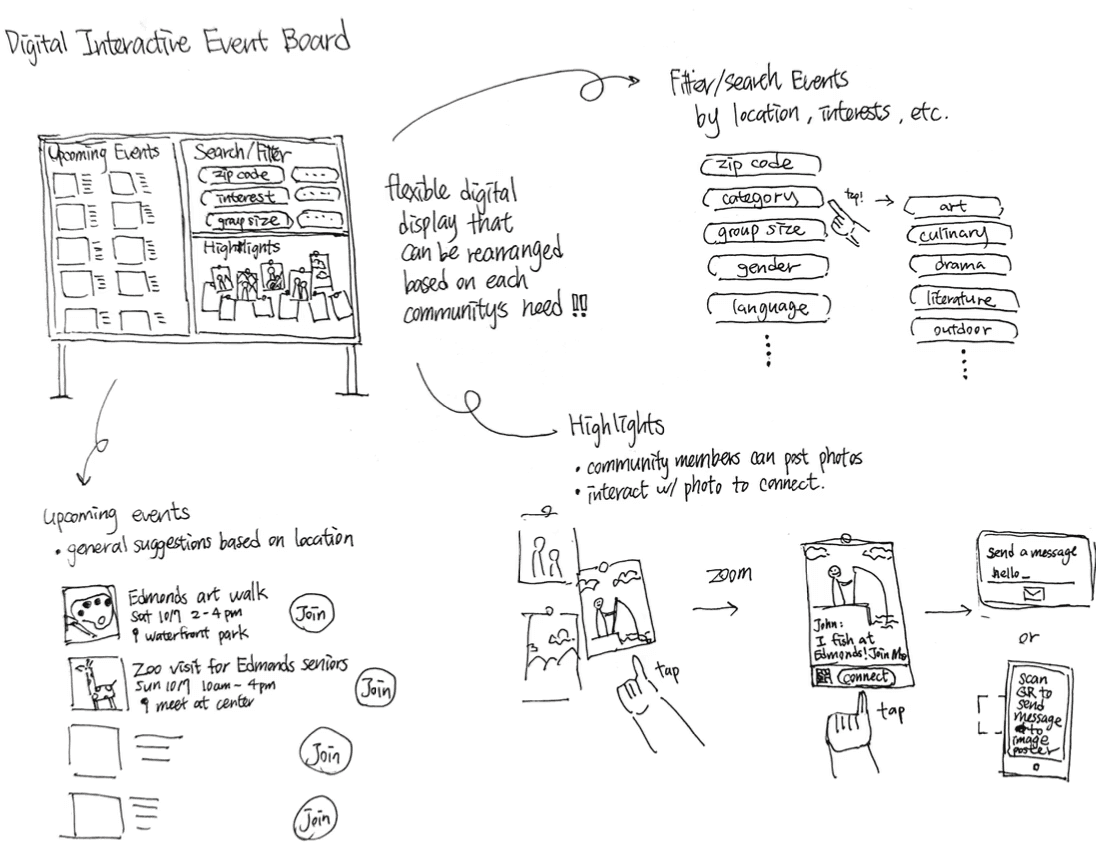 Digital Interactive Event Board
Upcoming Events
Search/Filter
zip code
....
interest
....
group size
....
Highlights
flexible digital
display that
can be rearranged
based on each
community's need !!
Filter/search Events
by location, interests, etc.
zip code
category
group size
gender
language
tap!
art
culinary
drama
literature
outdoor
Highlights
• community members can post photos
• interact w/ photo to connect.
tap
zoom
John:
I fish at
Edmonds! Join Me
connect
tap
send a message
hello_
or
scan
QR to
send
message
to
image
poster
upcoming events
• general suggestions based on location
Edmonds art walk
Sat 10/7 2-4pm
waterfront park
Join
Zoo visit for Edmonds seniors
Sun 10/7 10am-4pm
meet at center
Join
Join
Join